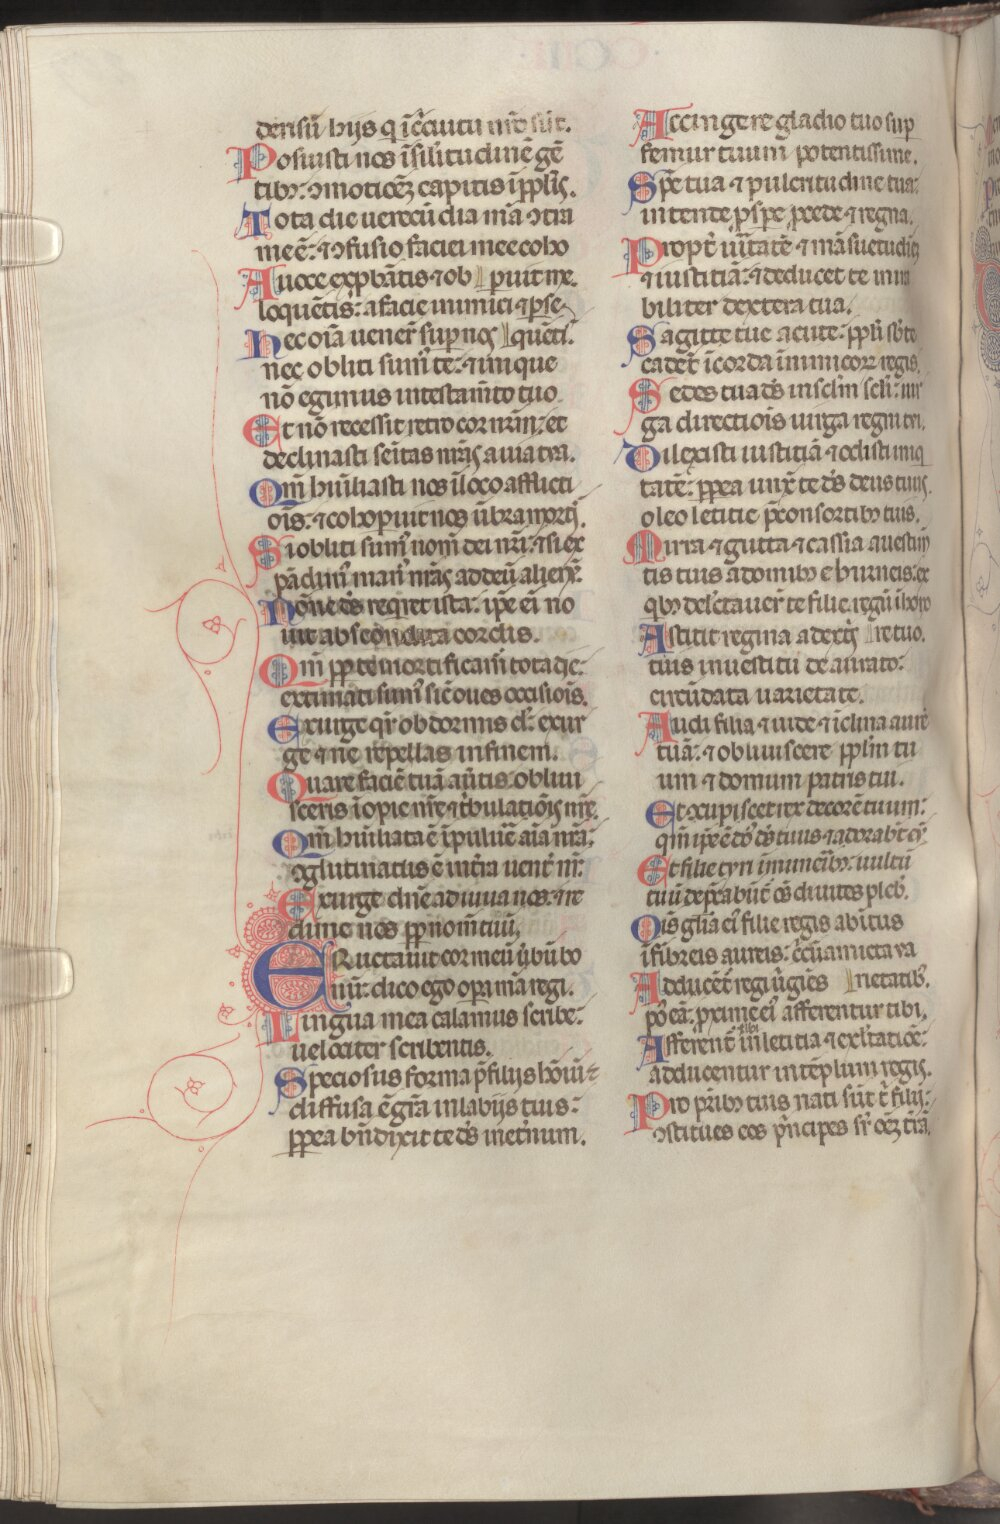 derisū hijs q̄ ī c̄cuitu nr̄o sūt.
Posuisti nos ī sil̄itudinē gē
tibꝰ: ꝯmotioēꝫ capitis ī ppl̄is.
Tota die uerecūdia m̄a ꝯtra
me ē: ⁊ ꝯfusio faciei mee coho
A uoce exp̄bātis ⁊ ob ꝑuit me.
loquētis: a facie inimici ⁊ ꝑse
Hec oīa uener̄ suꝑ nos quētis.
nec obliti sumꝰ te: ⁊ inique
nō egimus in testam̄to tuo
Et nō recessit retro cor nr̄m: et
declinasti semitas nr̄as a uia tua.
Qm̄ hūiliasti nos ī loco afflicti
ois: ⁊ cohoꝑuit nos ūbra mortis.
Si obliti sumꝰ nom̄ dei nr̄i: ⁊ si ex
pādimꝰ manꝰ nr̄as ad deū alienū.
Nōne ds̄ reqiret ista: ip̄e eī no
uit abscondita cordis.
Qm̄ ꝓpter te mortificam̄ tota die:
extimati sumꝰ sic̄ oues occisiois.
Exurge qr̄ obdormis dn̄e: exur
ge ⁊ ne repellas in finem.
Quare faciē tuā au̅tis: obliui
sceris īopie nr̄e ⁊ t̄bulatiōis nr̄e.
Qm̄ hūiliata ē ī puluē aīa nr̄a:
ꝯglutinatus ē in tr̄a uenter nr̄.
Exurge dn̄e adiuua nos: ⁊ re
dime nos ꝓpter nom̄ tuū.
Eructauit cor meū ūbū bo
nū: dico ego oꝑa m̄a regi.
Lingua mea calamus scribe:
uelociter scribentis.
Speciosus forma p̄ filijs hōiū:
diffusa ē gr̄a in labijs tuis:
ꝓpterea bn̄dixit te ds̄ in et̄num.
Accingere gladio tuo suꝑ
femur tuum potentissime.
Spē tua ⁊ pulcritudine tua:
intende ꝓspe ꝓcede ⁊ regna.
Propt̄ ūitatē ⁊ māsuetudinē
⁊ iustitiā: ⁊ deducet te mira
biliter dextera tua.
Sagitte tue acute: ppl̄i sb̄ te
cadēt ī corda īimicoꝝ regis.
Sedes tua ds̄ in sclm̄ scli̅: uir
ga directiois uirga regni tui.
Dilexisti iustitiā ⁊ odisti iniq
tatē: ꝓpterea unxit te ds̄ deus tuus
oleo letitie p̄ consortibꝰ tuis.
Mirra ⁊ gutta ⁊ cassia a uestim̄
tis tuis a domibꝰ eburneis: ex
qbꝰ delc̄tauer̄ te filie regū ī hono
Astitit regina a dextris re tuo.
tuis in uestitu deaurato:
circūdata uarietate.
Audi filia ⁊ uide ⁊ īclina aurē
tuā: ⁊ obliuiscere pplm̄ tu
um ⁊ domum patris tui.
Et ꝯcupiscet rex decorē tuum:
qm̄ ip̄e ē do̅ ds̄ tuus ⁊ adorabt̄ eū
Et filie tyri ī munerībꝰ: uultū
tuū dep̄cabūt̄ oēs diuites pleb̄.
Ois gl̄ia eiꝰ filie regis ab ītus
ī fibreis aureis: c̄cūamicta ua
Adducēt̄ regi ūgiēs rietatibꝰ.
pꝰ eā: ꝓxime eiꝰ afferentur tibi,
tibi
Afferent̄ in letitia ⁊ exl̄tatiōe:
adducentur in tēplum regis.
Pro prībꝰ tuis nati sūt t̄ filij:
ꝯstitues eos p̄ncipes sr̄ oēꝫ tr̄ā.